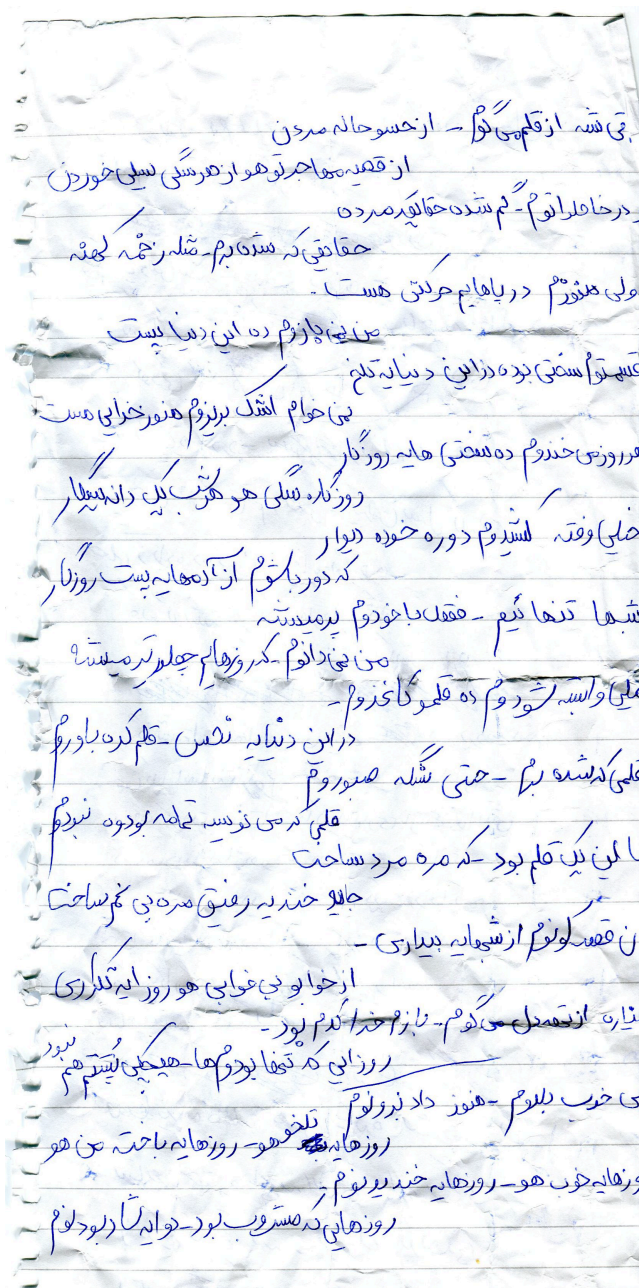 شه از قلم می گوم - از حس و حاله مردن
از قصیه مهاجرتو هو از هر سگی سیلی خوردن
در خاطراتوم - گم شده حقایقه مرده
حقایقی که شده برم - مثله زخمه کهنه
ولی هنوزم در پاهایم حرکتی هست .
من نمی بازوم ده این دنیا پست
قسمتوم سختی بوده در این دنیایه تلخ
نمی خوام اشک بریزوم هنوز خدایی هست
هر روز می خندوم ده سختی هایه روزگار
روزگاره سگی هو هر شب یک دانه سیگار
خیلی وقته کشیدوم دوره خوده دیوار
که دور باشوم از آدمهایه پست روزگار
شبها تنهائیم - فقط با خودوم پر میشه
من نمی دانوم - که روزهایم چطور تیر میشه
خیلی وابسته شودوم ده قلمو کاغذوم -
در این دنیایه نحس - قلم کده باوروم
قلمی که شده برم - حتی سنگه صبوروم
قلمی که می نویسه تمامه بودوه نبودوم
این یک قلم بود - که مره مرد ساخت
خندیه رفیق مره بی غم ساخت
قصه کونوم از شبهایه بیداری -
از خوابو بی خوابی هو روزایه تکراری
از تهدل می گوم - بازم خدا کدم بود -
روزایی که تنها بودوم ها - هیچکی پشتم هم نبود
خوب بلدوم - هنوز داد نزدوم
روزهایه تلخو هو - روزهایه باخته من هو
روزهایه خوب هو - روزهایه خندیدنوم ،
روزهایی که مشروب بود - دوایه شاد بودنوم